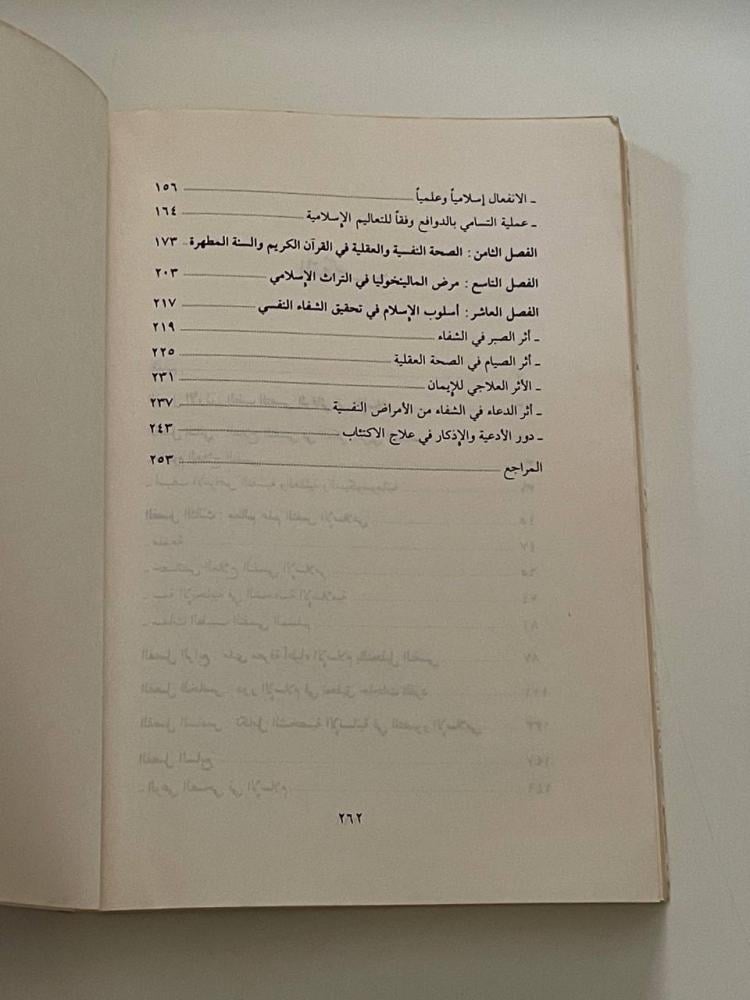 ـ الانفعال إسلامياً وعلمياً ١٥٦
ـ عملية التسامي بالدوافع وفقاً للتعاليم الإسلامية ١٦٤
الفصل الثامن: الصحة النفسية والعقلية في القرآن الكريم والسنة المطهرة ١٧٣
الفصل التاسع: مرض المالينخوليا في التراث الإسلامي ٢٠٣
الفصل العاشر: أسلوب الإسلام في تحقيق الشفاء النفسي ٢١٧
ـ أثر الصبر في الشفاء ٢١٩
ـ أثر الصيام في الصحة العقلية ٢٢٥
ـ الأثر العلاجي للإيمان ٢٣١
ـ أثر الدعاء في الشفاء من الأمراض النفسية ٢٣٧
ـ دور الأدعية والإذكار في علاج الاكتئاب ٢٤٣
المراجع ٢٥٣
٢٦٢